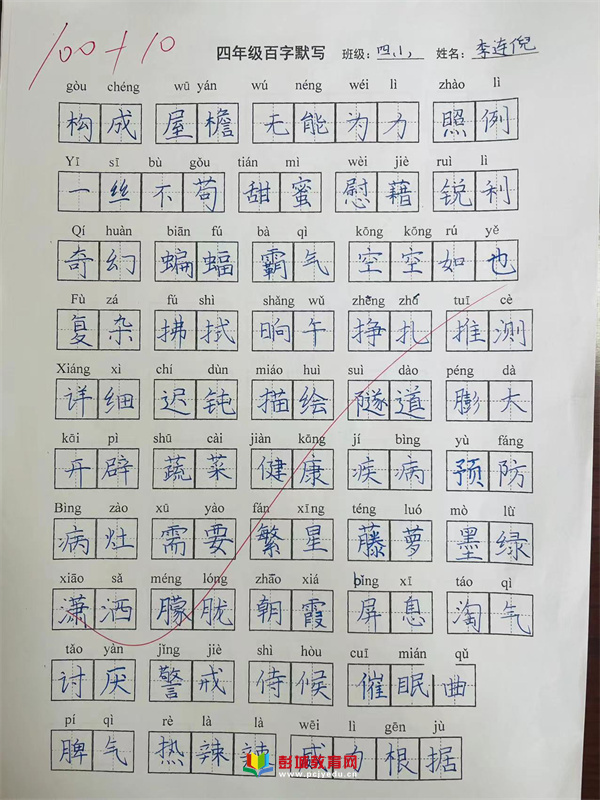 100+10
四年级百字默写 班级：四、1、 姓名：李连倪
gòu chéng wū yán wú néng wéi lì zhào lì
构成 屋檐 无能为力 照例
Yī sī bù gǒu tián mì wèi jiè ruì lì
一丝不苟 甜蜜 慰藉 锐利
Qí huàn biān fú bà qì kōng kōng rú yě
奇幻 蝙蝠 霸气 空空如也
Fù zá fú shì shǎng wǔ zhēng zhá tuī cè
复杂 拂拭 晌午 挣扎 推测
Xiáng xì chí dùn miáo huì suì dào péng dà
详细 迟钝 描绘 隧道 膨大
kāi pì shū cài jiàn kāng jí bìng yù fáng
开辟 蔬菜 健康 疾病 预防
Bìng zào xū yào fán xīng téng luó mò lǜ
病灶 需要 繁星 藤萝 墨绿
xiāo sǎ méng lóng zhāo xiá bǐng xī táo qì
潇洒 朦胧 朝霞 屏息 淘气
tǎo yàn jǐng jiè shì hòu cuī mián qǔ
讨厌 警戒 侍候 催眠曲
pí qì rè là là wēi lì gēn jù
脾气 热辣辣 威力 根据
彭城教育网
www.pcjyedu.cn